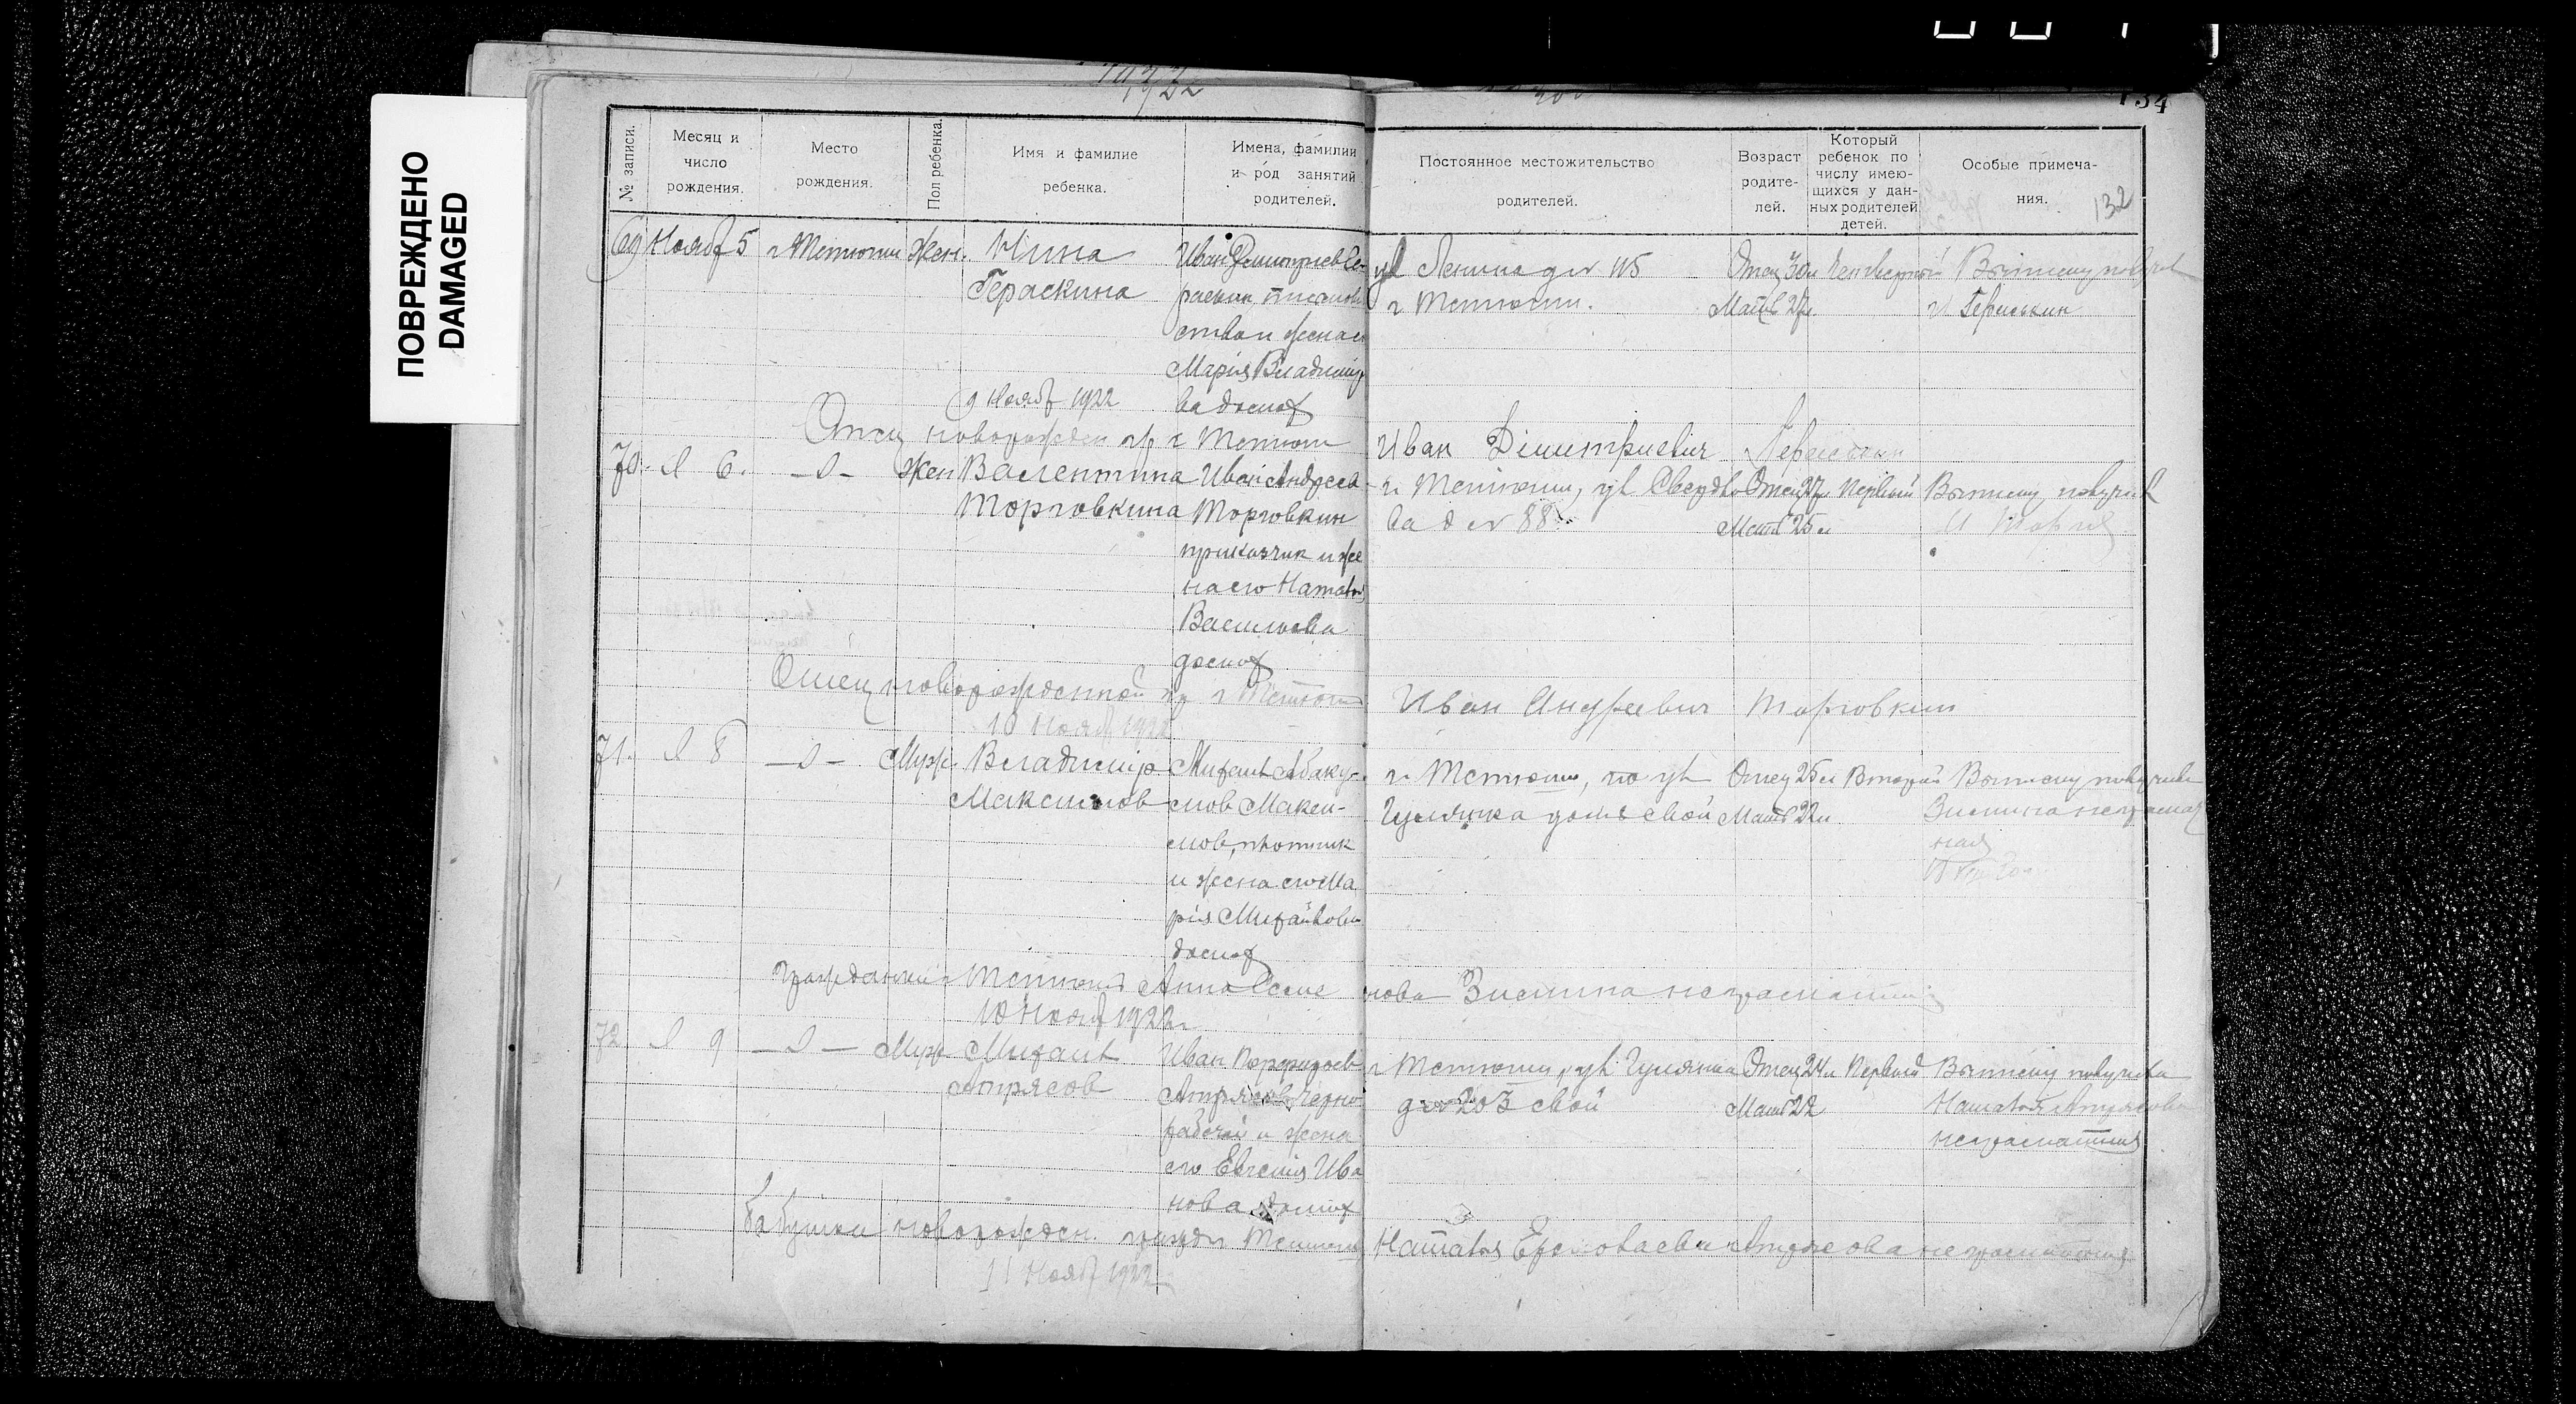 ПОВРЕЖДЕНО
DAMAGED
1922
134
132
№ записи.
Месяц и число рождения.
Место рождения.
Пол ребенка.
Имя и фамилие ребенка.
Имена, фамилии и род занятий родителей.
Постоянное местожительство родителей.
Возраст родите-лей.
Который ребенок по числу имею-щихся у дан-ных родителей детей.
Особые примеча-ния.
69 Ноябр 5 г Тетюши Жен. Нина
Гераскина
Иван Димитриев Ге-
раскин
ства и жена ег
Мария Владимір
ва домох
ул Ленина д № 115
г Тетюши.
Отец 30 л Четвертый
Мать 27 л
Выписку получил
Гераськин
9 Ноябр 1922
Отец новорожден гр г Тетюш Иван Дімитриевич Гераськин
70. 6. Жен Валентина
Торговкина
Иван Андреев
Торговкин
приказчик и же
на его Наталия
Васильева
домох
г Тетюши, ул Свердло
ва д № 88
Отец 27 л Первый
Мать 25 л
Выписку получил
Отец новорожденной гр г Тетюши Иван Андреевич Торговкин
10 Ноябр 1922
71. 8 Муж. Владимір
Максимов
Михаил Абаку-
мов Макси-
мов, плотник
и жена его Ма
рія Михайлова
домох
г. Тетюши, по ул
Гулянка домъ свой
Отец 25 л Второй
Мать 22 л
Выписку получила
Зимина неграмот
ная
Гражданка г Тетюши Анна Семе нова Зимина неграмотная
10 Ноябр 1922 г
72 9 Муж Михаил
Атрясов
Иван
Атрясов, черно
рабочий и жена
его Евгения Ива
нова домох
г Тетюши, ул Гулянка
д № 203 свой
Отец 24 л Первый
Мать 22
Выписку получила
Наталия Атрясова
неграмотная
бабушка новорожден. гражд г Тетюши Наталья Ермолаевна Атрясова неграмотная
11 Ноябр 1922